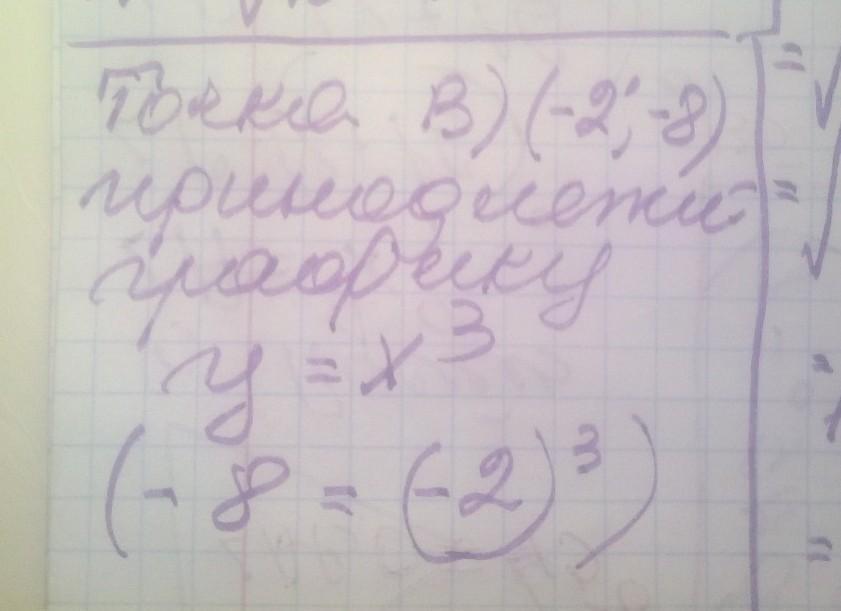 Точка В) (-2; -8)
принадлежит
графику
y = x³
(-8 = (-2)³)
=√
=√
=
=